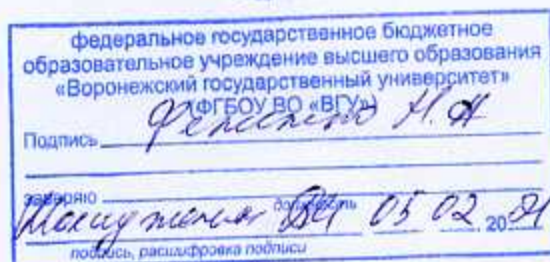 федеральное государственное бюджетное
образовательное учреждение высшего образования
«Воронежский государственный университет»
(ФГБОУ ВО «ВГУ»)
Подпись Н.А
заверяю
должность
05 02 20 21
подпись, расшифровка подписи